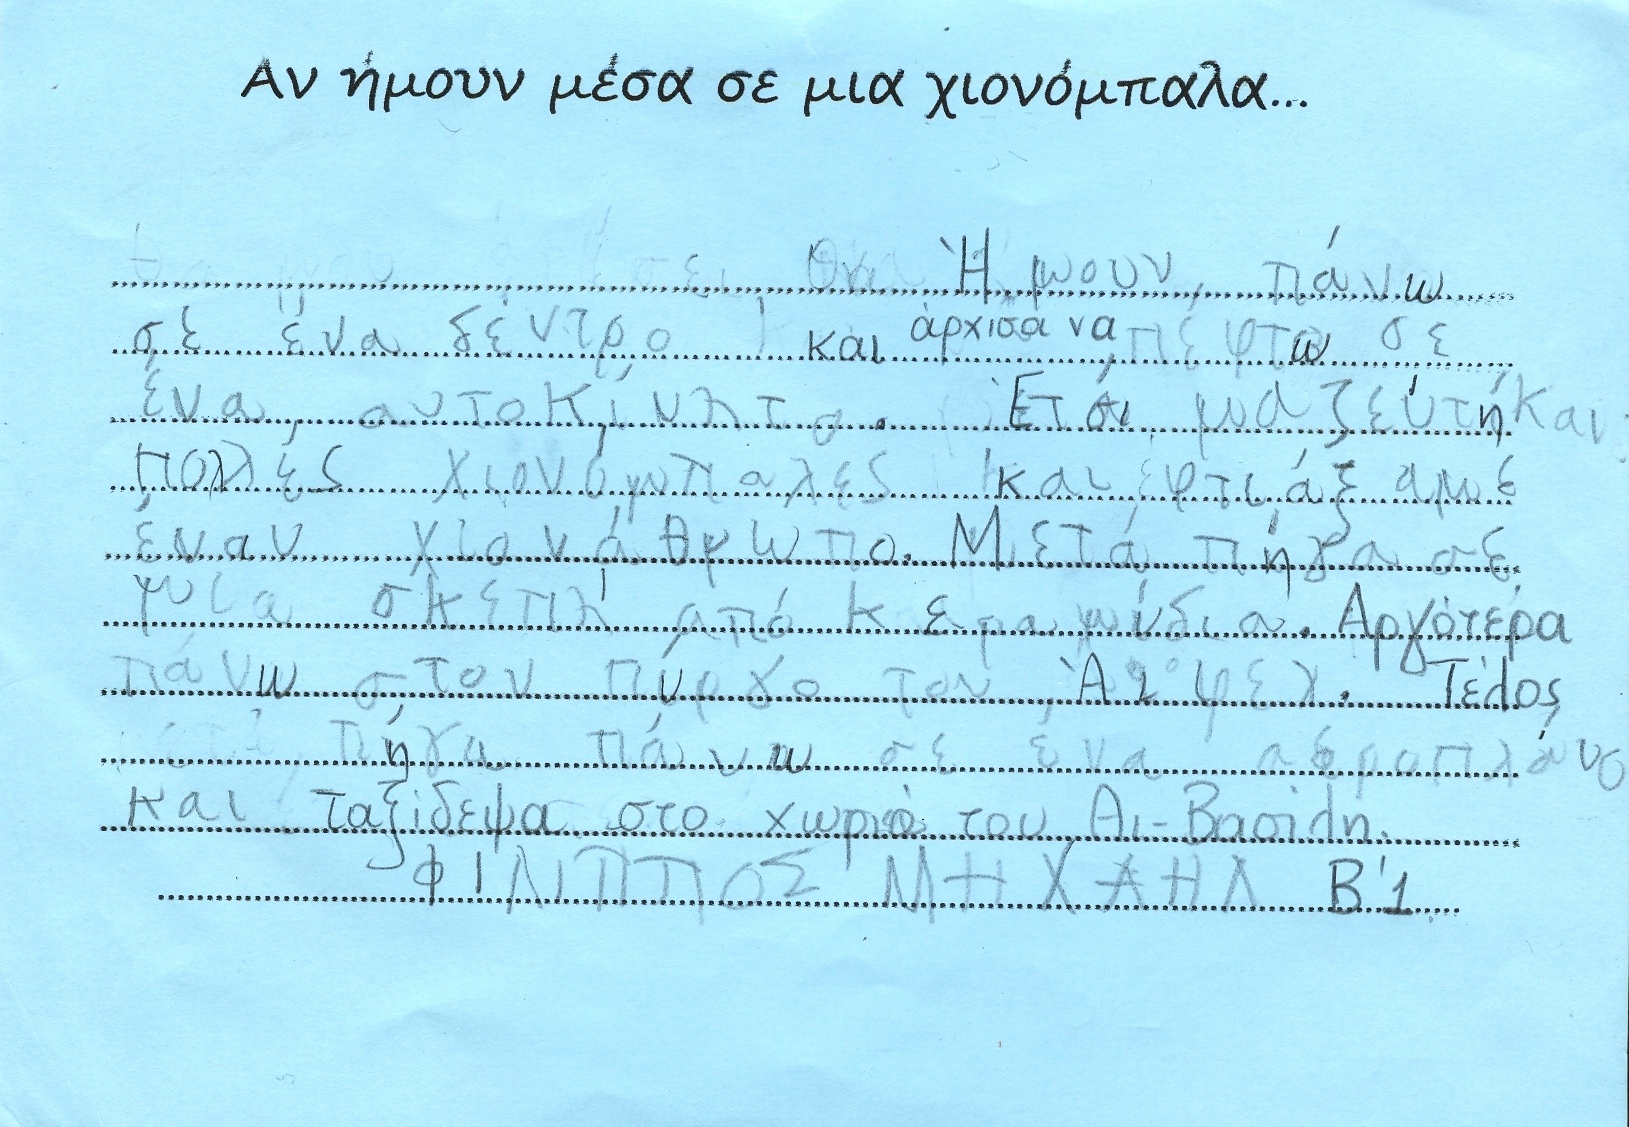 Αν ήμουν μέσα σε μια χιονόμπαλα...
Ήμουν πάνω
σε ένα δέντρο και άρχισα να πέφτω σε
ένα αυτοκίνητο. Έτσι μαζεύτηκαν
πολλές χιονόμπαλες και έφτιάξαμε
έναν χιονάθρωπο. Μετά πήγα σε
μία σκεπή από κεραμύδια. Αργότερα
πάνω στον πύργο του Άιφελ. Τέλος
πήγα πάνω σε ένα αεροπλάνο
και ταξίδεψα στο χωριό του Αι-Βασίλη.
ΦΙΛΙΠΠΟΣ ΜΗΧΑΗΛ Β'1